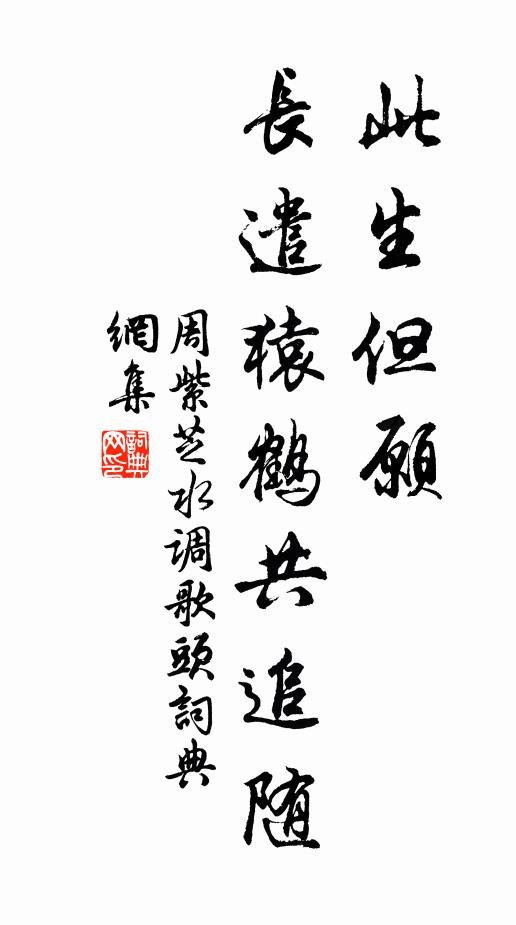 此生但願
長遣猿鶴共追随
周紫芝水调歌頭詞典
網集
詞典網印